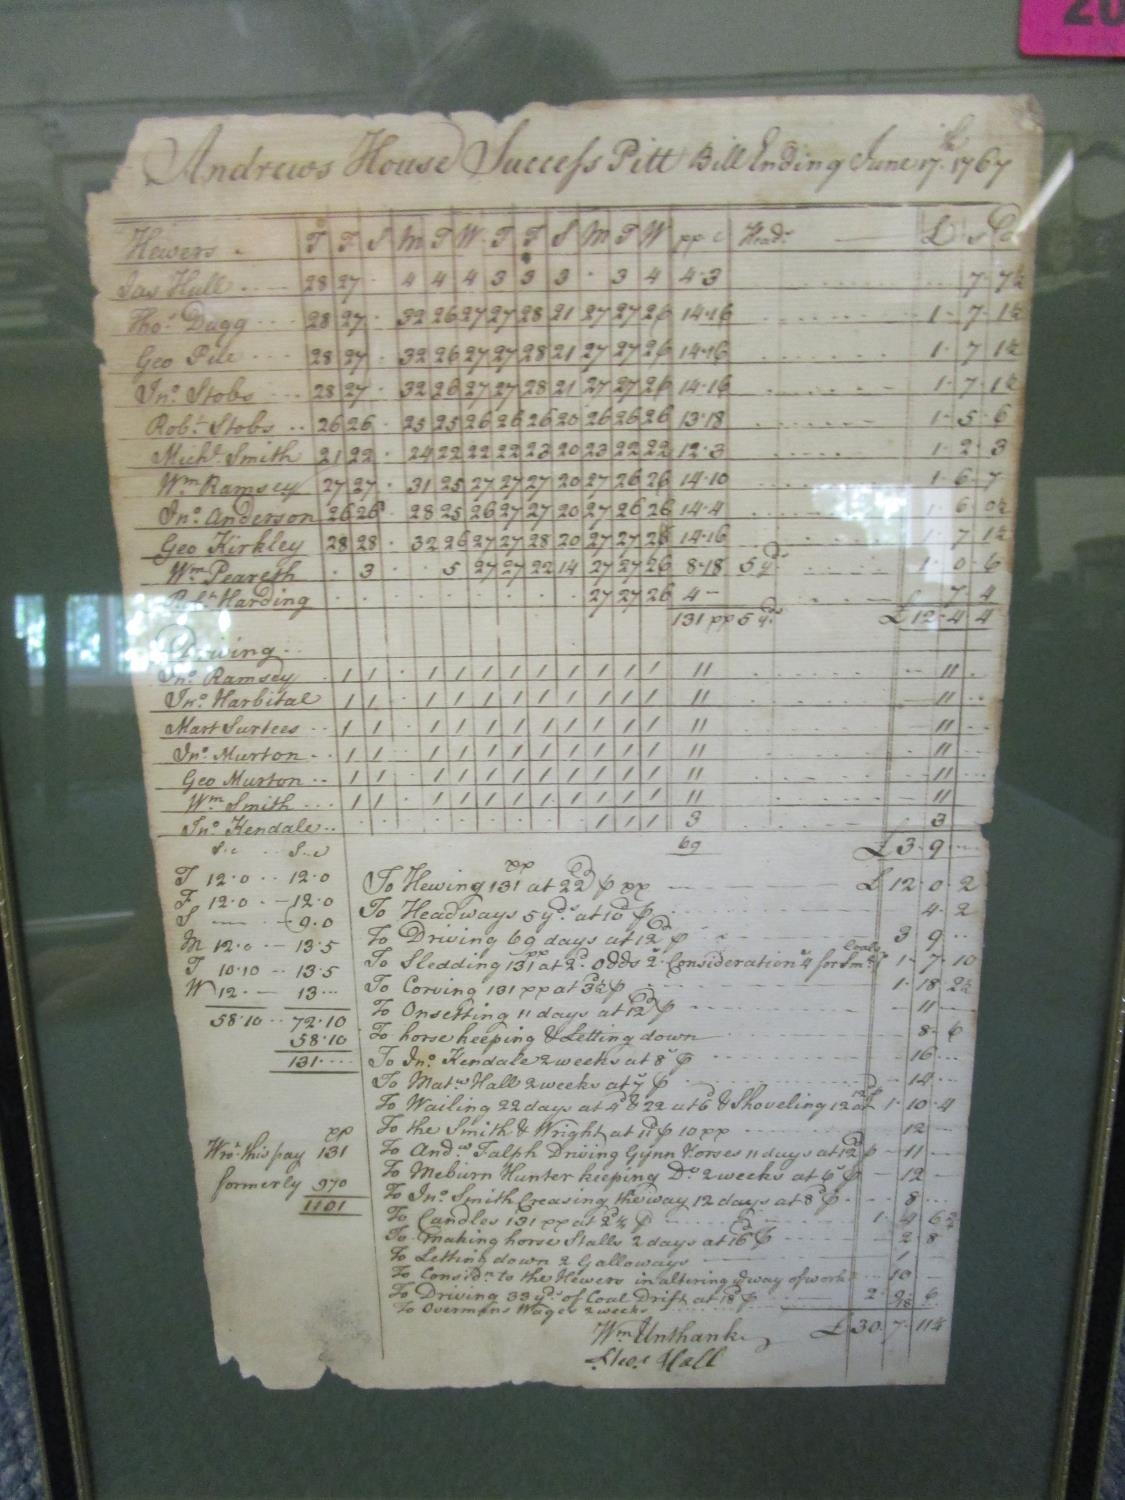 20
Andrews House Success Pitt Bill Ending June 17th 1767
Hewers T F S M T W T F S M T W pp c Heads £ s d
Jas Hull 28 27 · 4 4 4 3 3 3 · 3 4 4·3 7·7½
Thos Dagg 28 27 · 32 26 27 27 28 21 27 27 26 14·16 1·7·1½
Geo Pile 28 27 · 32 26 27 27 28 21 27 27 26 14·16 1·7 1½
Jno Stobs 28 27 · 32 26 27 27 28 21 27 27 26 14·16 1·7·1½
Robt Stobs 26 26 · 25 25 26 26 26 20 26 26 26 13·18 1·5·6
Michl Smith 21 22 · 24 22 22 22 23 20 23 22 22 12·3 1·2·3
Wm Ramsey 27 27 · 31 25 27 27 27 20 27 26 26 14·10 1·6·7
Jno Anderson 26 26 · 28 25 26 27 27 20 27 26 26 14·4 1·6 0½
Geo Kirkley 28 28 · 32 26 27 27 28 20 27 27 26 14·16 1·7 1½
Wm Peareth · 3 · · 5 27 27 22 14 27 27 26 8·18 5 yds 1·0·6
Robt Harding 27 27 26 4 – 7·4
131 pp 5 yds £12·4 4
Driving
Jno Ramsey 1 1 · 1 1 1 1 1 1 1 1 1 11 11
Jno Harbital 1 1 · 1 1 1 1 1 1 1 1 1 11 11
Mart Surtees 1 1 · 1 1 1 1 1 1 1 1 1 11 11
Jno Murton 1 1 · 1 1 1 1 1 1 1 1 1 11 11
Geo Murton 1 1 · 1 1 1 1 1 1 1 1 1 11 11
Wm Smith 1 1 · 1 1 1 1 1 1 1 1 1 11 11
Jno Kendale 1 1 1 3 3
69 £3·9
S·c S·c
T 12·0 12·0
F 12·0 12·0
S — 9·0
M 12·0 13·5
T 10·10 13·5
W 12· — 13
58·10 72·10
58·10
131
Wro: this pay 131 pp
formerly 970
1101
To Hewing 131 pp at 22d ⅌ pp £ 12·0·2
To Headways 5 yds at 10d ⅌ 4·2
To Driving 69 days at 12d ⅌ 3 9
To Sledding 131 pp at 2d Odds Consideration for Smls Coals 1·7·10
To Corving 131 pp at 3½d ⅌ 1·18·2½
To Onsetting 11 days at 12d ⅌ 11
To horse keeping & Letting down 8·6
To Jno Kendale 2 weeks at 8s ⅌ 16
To Matw Hall 2 weeks at 7s ⅌ 14
To Wailing 22 days at 4d & 22 at 6d & Shoveling 12 at 12d ⅌ 1·10·4
To the Smith & Wright at 11d ⅌ 10 pp 12
To Andw Falph Driving Gynn Horses 11 days at 12d ⅌ 11
To Meburn Hunter keeping Do 2 weeks at 6s ⅌ 12
To Jno Smith Creasing the way 12 days at 8d ⅌ 8
To Candles 131 pp at 2¼d ⅌ 1·4 6¾
To making horse Stalls 2 days at 16d ⅌ 2 8
To Letting down 2 Galloways 1
To Considn to the Hewers in altering ye way of work 10
To Driving 33 yds of Coal Drift at 18d ⅌ 2 9 6
To Overmans Wages 2 weeks 18
£30·7·11¼
Wm Unthank
Hall